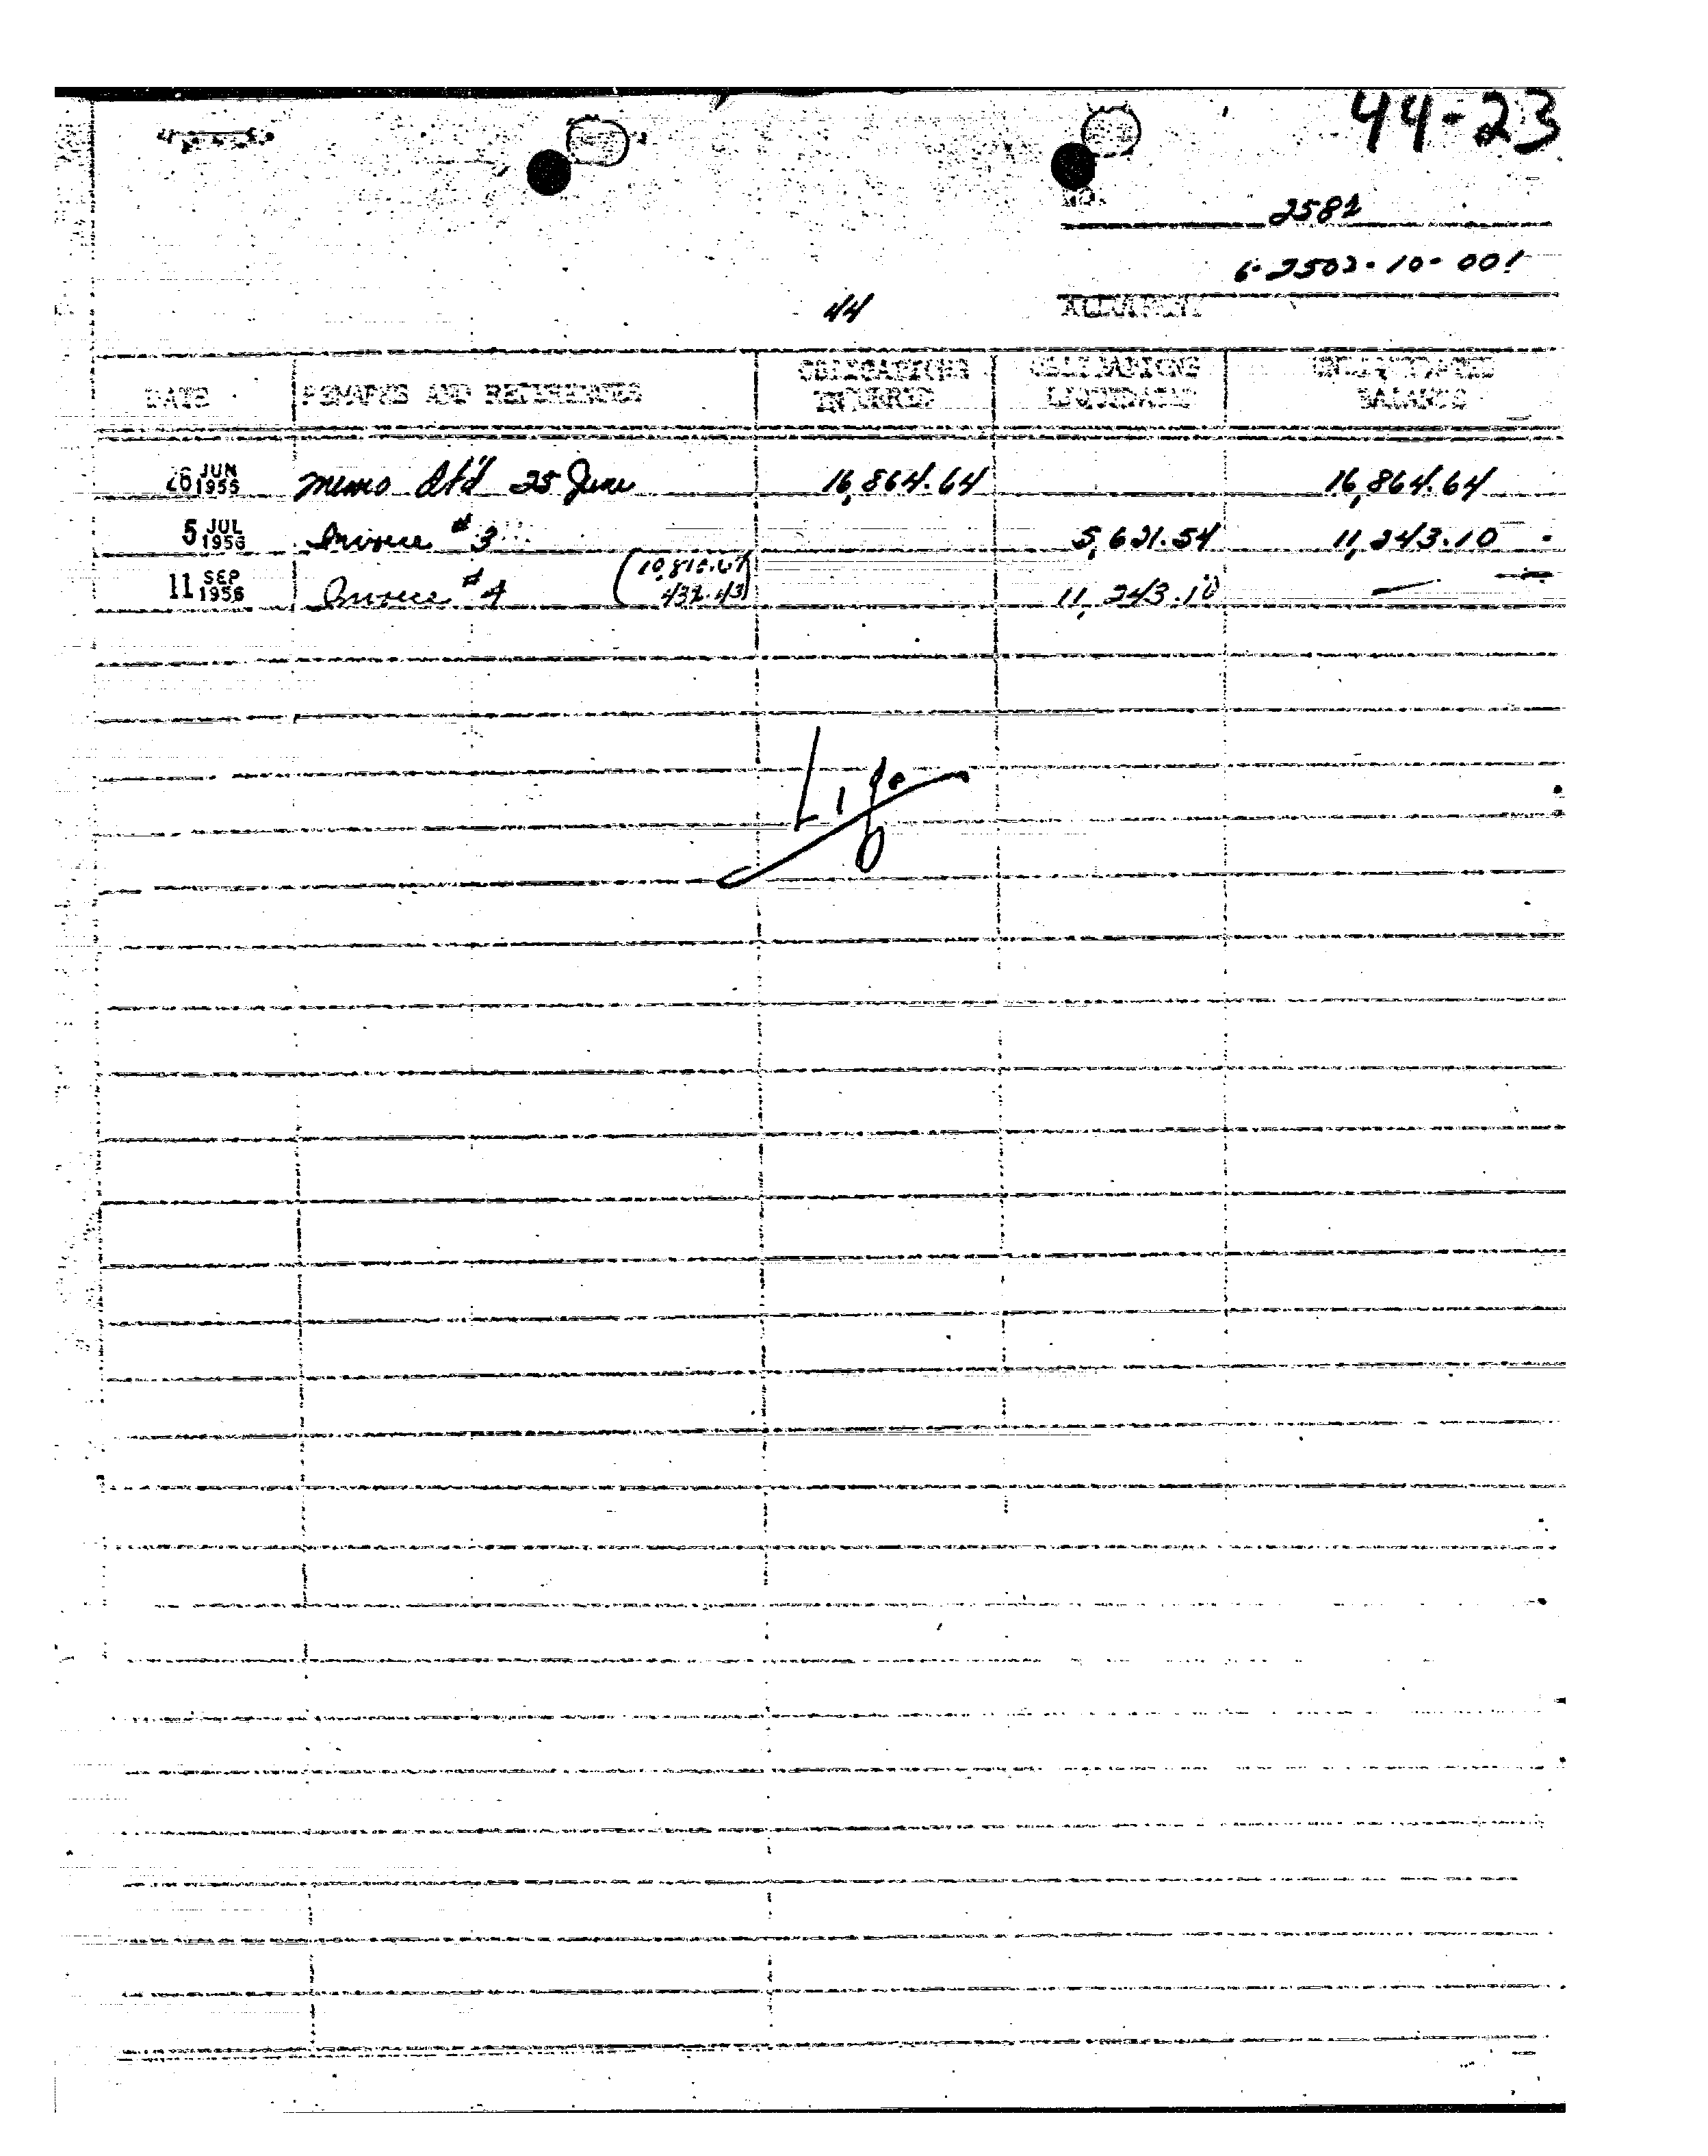 44-23
NO. 2581
6-2502-10-001
44 ALLOTMENT
DATE REMARKS AND REFERENCES OBLIGATIONS INCURRED OBLIGATIONS LIQUIDATED UNLIQUIDATED BALANCE
26 JUN 1955 Memo dtd 25 June 16,864.64 16,864.64
5 JUL 1956 Invoice #3 5,621.54 11,243.10
11 SEP 1956 Invoice #4 (10,810.67 432.43) 11,243.10 —